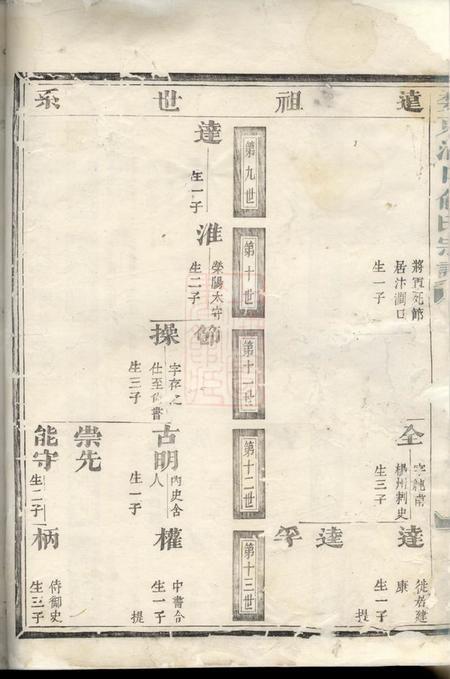 達祖世系
將軍死節
居汴澗口
生一子
全
字純甫
楊州刺史
生三子
達
徙居建
康
生一子
提
達
平
第九世
第十世
第十一世
第十二世
第十三世
達
生一子
淮
榮陽太守
生二子
節
操
字存之
仕至尚書
生三子
古明
內史舍
人
生一子
權
中書令
生一子
提
崇先
能守
生二子
柄
侍御史
生三子